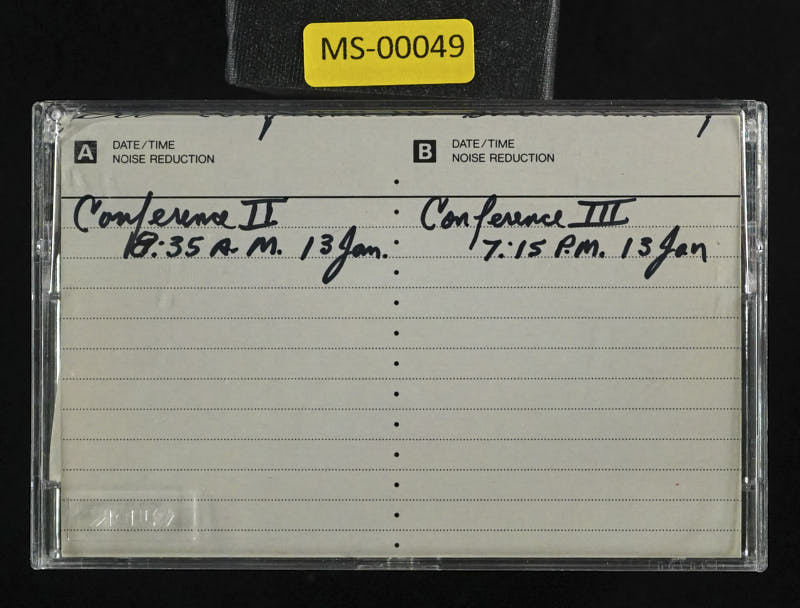 MS-00049
A DATE/TIME
NOISE REDUCTION
B DATE/TIME
NOISE REDUCTION
Conference II
8:35 A.M. 13 Jan.
Conference III
7:15 P.M. 13 Jan